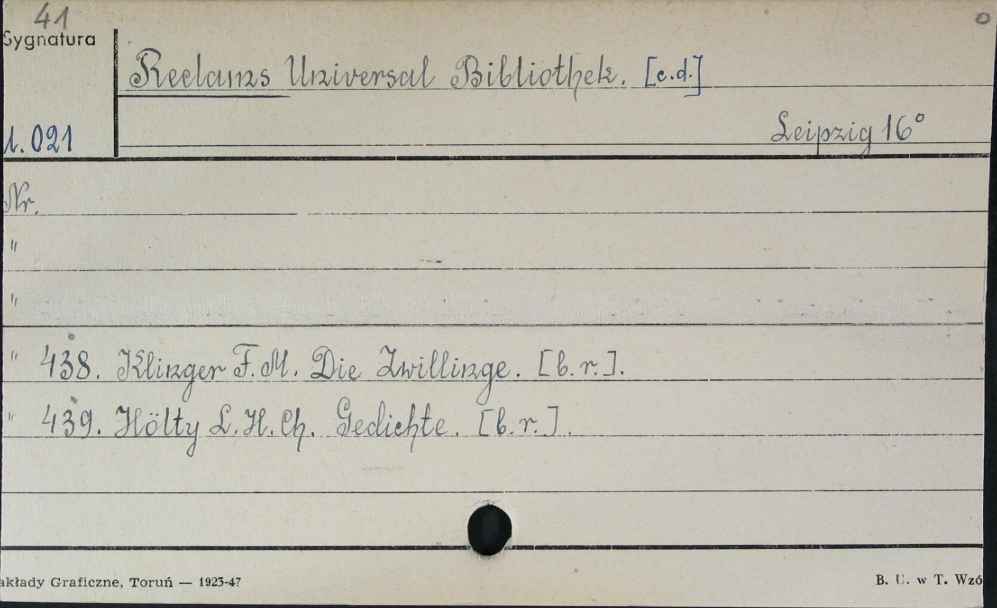 41
0
Sygnatura
Reclams Universal Bibliothek. [c.d.]
1.021
Leipzig 16°
Nr.
"
"
" 438. Klinger F. M. Die Zwillinge. [b.r.].
" 439. Hölty L. H. Ch. Gedichte. [b.r.].
akłady Graficzne, Toruń — 1923-47
B. U. w T. Wzó